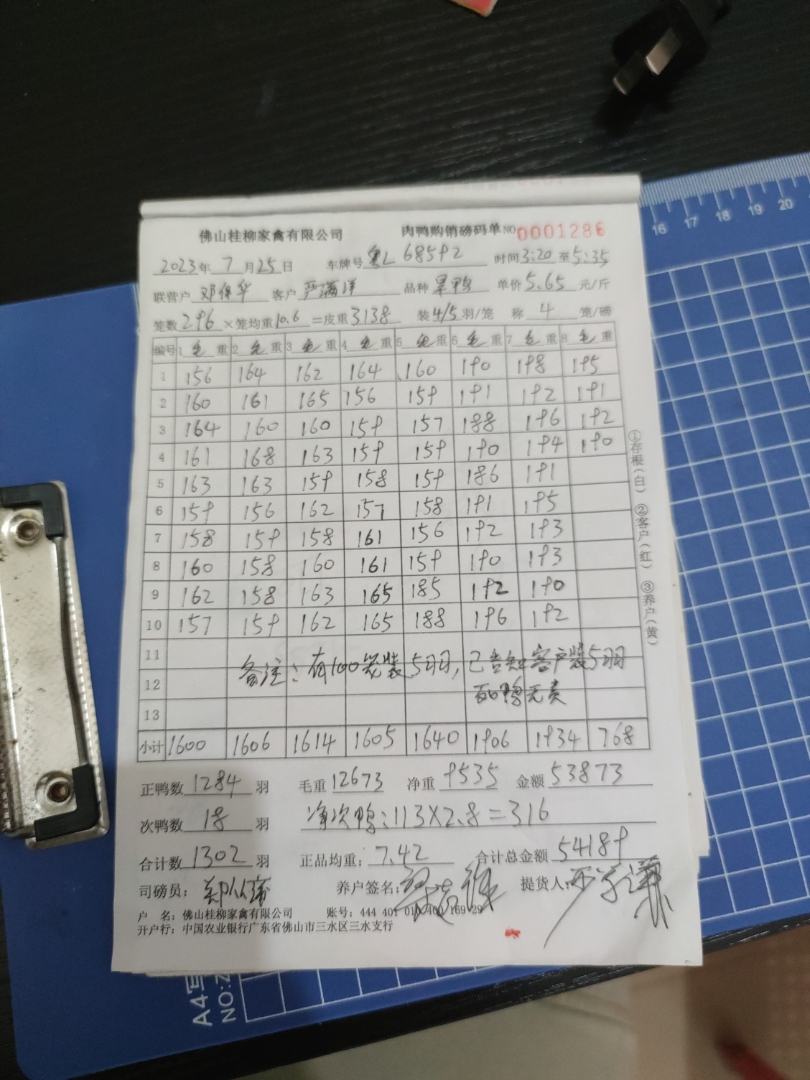 佛山桂柳家禽有限公司 肉鸭购销磅码单 NO 0001286
2023年 7月 25日 车牌号 粤L 68592 时间 3:20 至 5:35
联营户 邓伟华 客户 严满洋 品种 果鸭 单价 5.65 元/斤
笼数 296 ×笼均重 10.6 =皮重 3138 装 4/5 羽/笼 称 4 笼/磅
编号 1 毛 重 2 毛 重 3 毛 重 4 毛 重 5 毛 重 6 毛 重 7 毛 重 8 毛 重
1 156 164 162 164 160 190 198 195
2 160 161 165 156 159 191 192 191
3 164 160 160 159 157 188 196 192
4 161 168 163 159 159 190 194 190
5 163 163 159 158 159 186 191
6 159 156 162 157 158 191 195
7 158 159 158 161 156 192 193
8 160 158 160 161 159 190 193
9 162 158 163 165 185 192 190
10 157 159 162 165 188 196 192
11
备注:有100笼装5羽,已告知客户装5羽
12
死鸭无责
13
小计 1600 1606 1614 1605 1640 1906 1934 768
正鸭数 1284 羽 毛重 12673 净重 9535 金额 53873
次鸭数 18 羽 净次鸭:113×2.8=316
合计数 1302 羽 正品均重: 7.42 合计总金额 54189
司磅员: 养户签名: 提货人:
户 名:佛山桂柳家禽有限公司 账号:444 401 010 400 169 29
开户行:中国农业银行广东省佛山市三水区三水支行
①存根(白) ②客户(红) ③养户(黄)
16 17 18 19 20
A4写
NO: